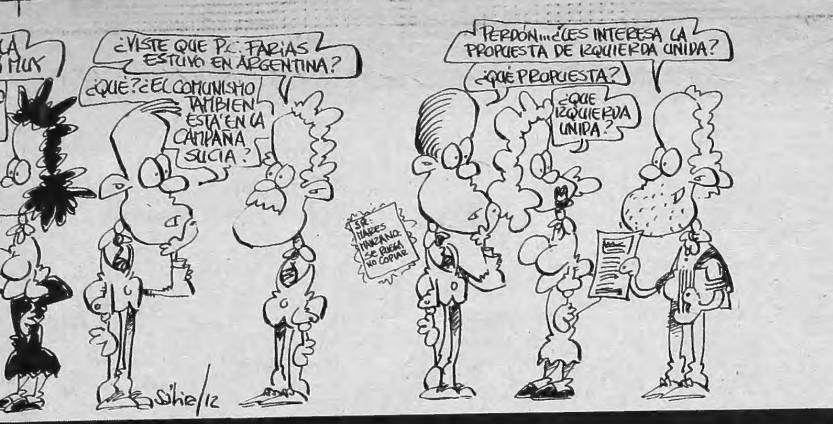 LA
MUY
¿VISTE QUE P.C. FARIAS
ESTUVO EN ARGENTINA?
¿QUÉ? ¿EL COMUNISMO
TAMBIEN
ESTA' EN LA
CAMPAÑA
SUCIA?
PERDÓN... ¿LES INTERESA LA
PROPUESTA DE IZQUIERDA UNIDA?
¿QUÉ PROPUESTA?
¿QUE
IZQUIERDA
UNIDA?
SR:
MANZANO:
SE RUEGA
NO COPIAR
/12